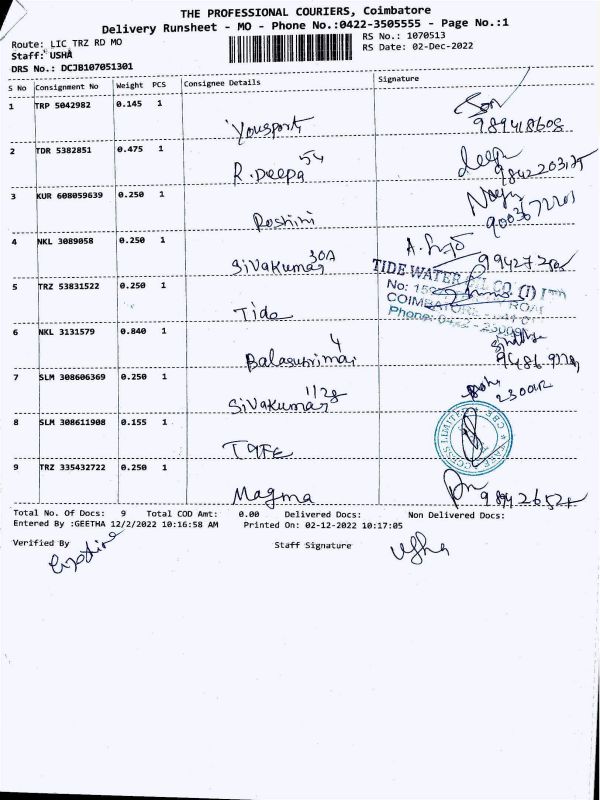 THE PROFESSIONAL COURIERS, Coimbatore
Delivery Runsheet - MO - Phone No.:0422-3505555 - Page No.:1
Route: LIC TRZ RD MO
RS No.: 1070513
Staff: USHA
RS Date: 02-Dec-2022
DRS No.: DCJB107051301
S No Consignment No Weight PCS Consignee Details Signature
1 TRP 5042982 0.145 1
Yousporty 989418608
2 TDR 5382851 0.475 1
R.Deepa 54 Deepa
3 KUR 608059639 0.250 1
Roshini
4 NKL 3089058 0.250 1
Sivakumar 30A
5 TRZ 53831522 0.250 1
Tide
TIDE WATER OIL CO (I) LTD
COIMBATORE
Phone: 0422 -
6 NKL 3131579 0.840 1
Balasubrimai 4
7 SLM 308606369 0.250 1
Sivakumar 112g
8 SLM 308611908 0.155 1
TAFE
9 TRZ 335432722 0.250 1
Magma
Total No. Of Docs: 9 Total COD Amt: 0.00 Delivered Docs: Non Delivered Docs:
Entered By :GEETHA 12/2/2022 10:16:58 AM Printed On: 02-12-2022 10:17:05
Verified By Staff Signature
usha